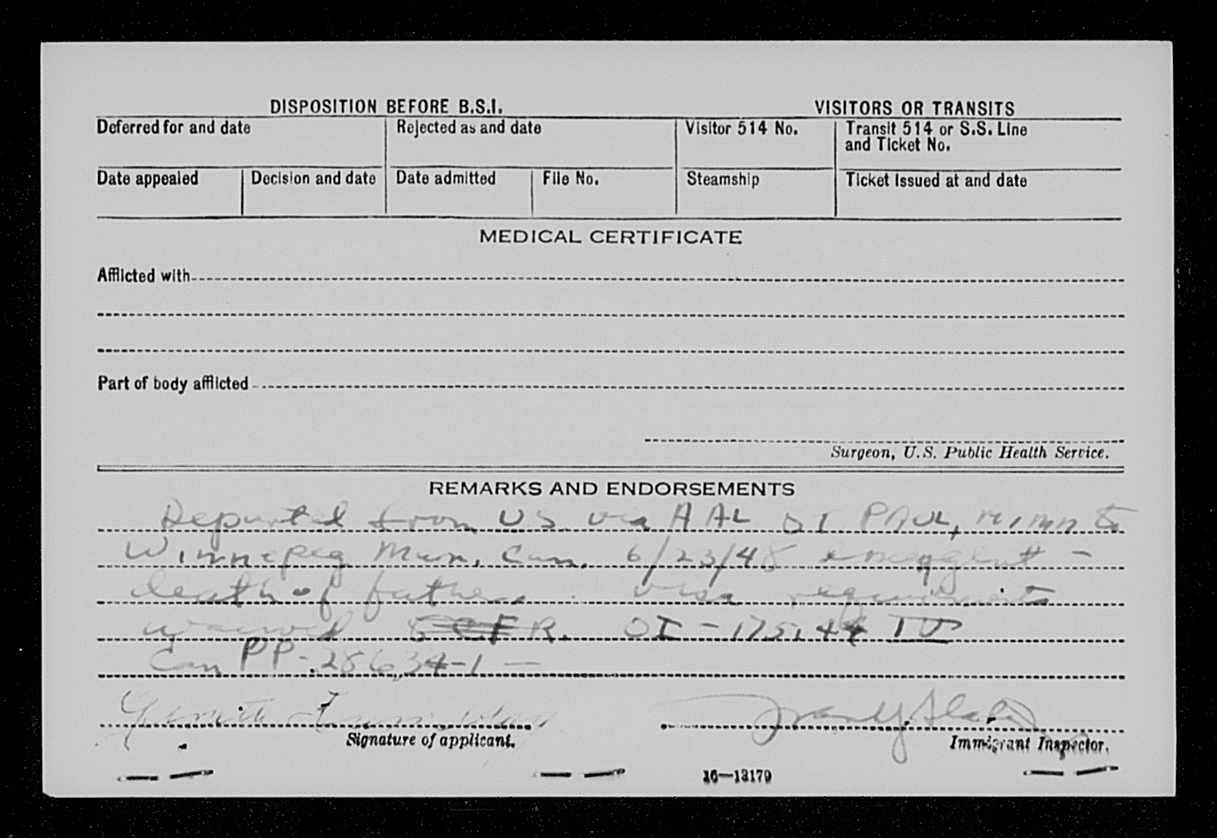 DISPOSITION BEFORE B.S.I.
VISITORS OR TRANSITS
Deferred for and date
Rejected as and date
Visitor 514 No.
Transit 514 or S.S. Line
and Ticket No.
Date appealed
Decision and date
Date admitted
File No.
Steamship
Ticket issued at and date
MEDICAL CERTIFICATE
Afflicted with
Part of body afflicted
Surgeon, U.S. Public Health Service.
REMARKS AND ENDORSEMENTS
Departed from US via AAL PAUL, MINN to
Winnepeg Man. Can. 6/23/48 -
death of father. visa requirements
waived R.
Can PP-28634-1 —
Signature of applicant.
Immigrant Inspector.
16—13179